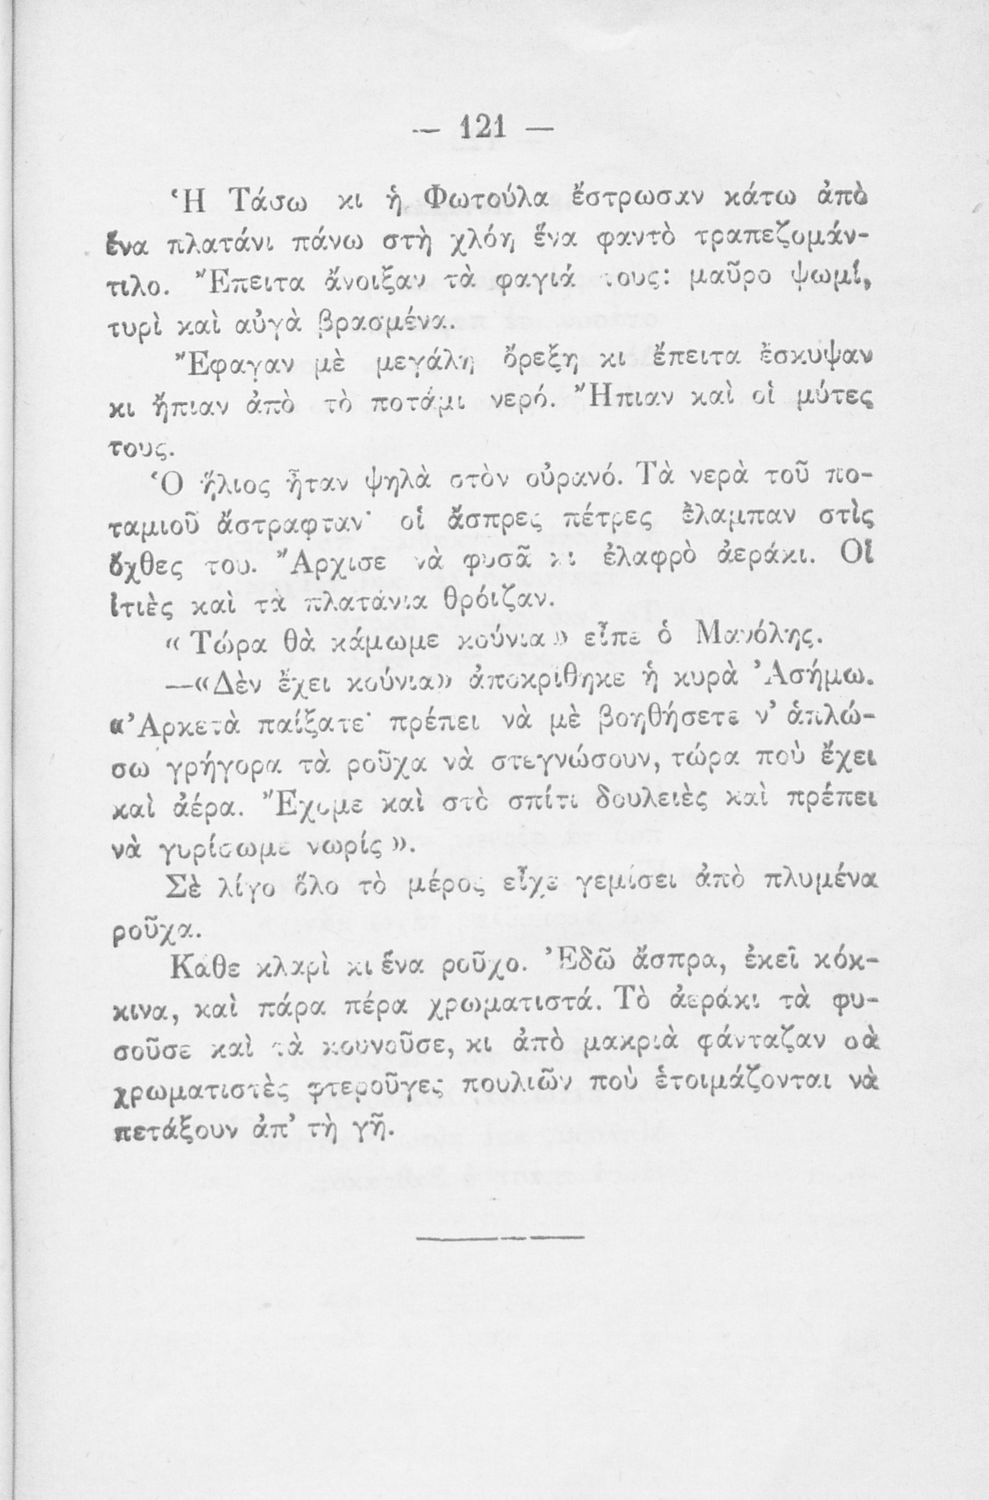 — 121 —
Ἡ Τάσω κι ἡ Φωτούλα ἔστρωσαν κάτω ἀπὸ
ἕνα πλατάνι πάνω στὴ χλόη ἕνα φαντὸ τραπεζομάν-
τιλο. Ἔπειτα ἄνοιξαν τὰ φαγιά τους: μαῦρο ψωμί,
τυρὶ καὶ αὐγὰ βρασμένα.
Ἔφαγαν μὲ μεγάλη ὄρεξη κι ἔπειτα ἔσκυψαν
κι ἤπιαν ἀπὸ τὸ ποτάμι νερό. Ἤπιαν καὶ οἱ μύτες
τους.
Ὁ ἥλιος ἦταν ψηλὰ στὸν οὐρανό. Τὰ νερὰ τοῦ πο-
ταμιοῦ ἄστραφταν· οἱ ἄσπρες πέτρες ἔλαμπαν στὶς
ὄχθες του. Ἄρχισε νὰ φυσᾶ κι ἐλαφρὸ ἀεράκι. Οἱ
ἰτιὲς καὶ τὰ πλατάνια θρόιζαν.
« Τώρα θὰ κάμωμε κούνια » εἶπε ὁ Μανόλης.
—«Δὲν ἔχει κούνια» ἀποκρίθηκε ἡ κυρὰ Ἀσήμω.
«Ἀρκετὰ παίξατε· πρέπει νὰ μὲ βοηθήσετε ν’ ἁπλώ-
σω γρήγορα τὰ ροῦχα νὰ στεγνώσουν, τώρα ποὺ ἔχει
καὶ ἀέρα. Ἔχομε καὶ στὸ σπίτι δουλειὲς καὶ πρέπει
νὰ γυρίσωμε νωρίς ».
Σὲ λίγο ὅλο τὸ μέρος εἶχε γεμίσει ἀπὸ πλυμένα
ροῦχα.
Κάθε κλαρὶ κι ἕνα ροῦχο. Ἐδῶ ἄσπρα, ἐκεῖ κόκ-
κινα, καὶ πάρα πέρα χρωματιστά. Τὸ ἀεράκι τὰ φυ-
σοῦσε καὶ τὰ κουνοῦσε, κι ἀπὸ μακριὰ φάνταζαν σὰ
χρωματιστὲς φτεροῦγες πουλιῶν ποὺ ἑτοιμάζονται νὰ
πετάξουν ἀπ’ τὴ γῆ.